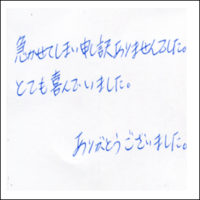 急がせてしまい申し訳ありませんでした。
とても喜んでいました。
ありがとうございました。